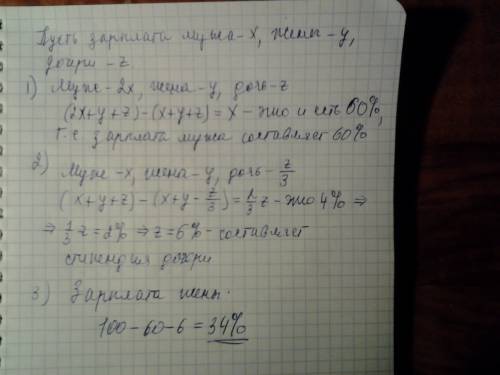 Пусть зарплата мужа - x, жены - y,
дочери - z.
1) Муж - 2x, жена - y, дочь - z
(2x+y+z)-(x+y+z)=x - это и есть 60%,
т.е зарплата мужа составляет 60%
2) Муж - x, жена - y, дочь - z/3
(x+y+z)-(x+y-z/3)=2/3 z - это 4% ⇒
⇒ 1/3 z = 2% ⇒ z=6% - составляет
стипендия дочери
3) Зарплата жены.
100-60-6=34%